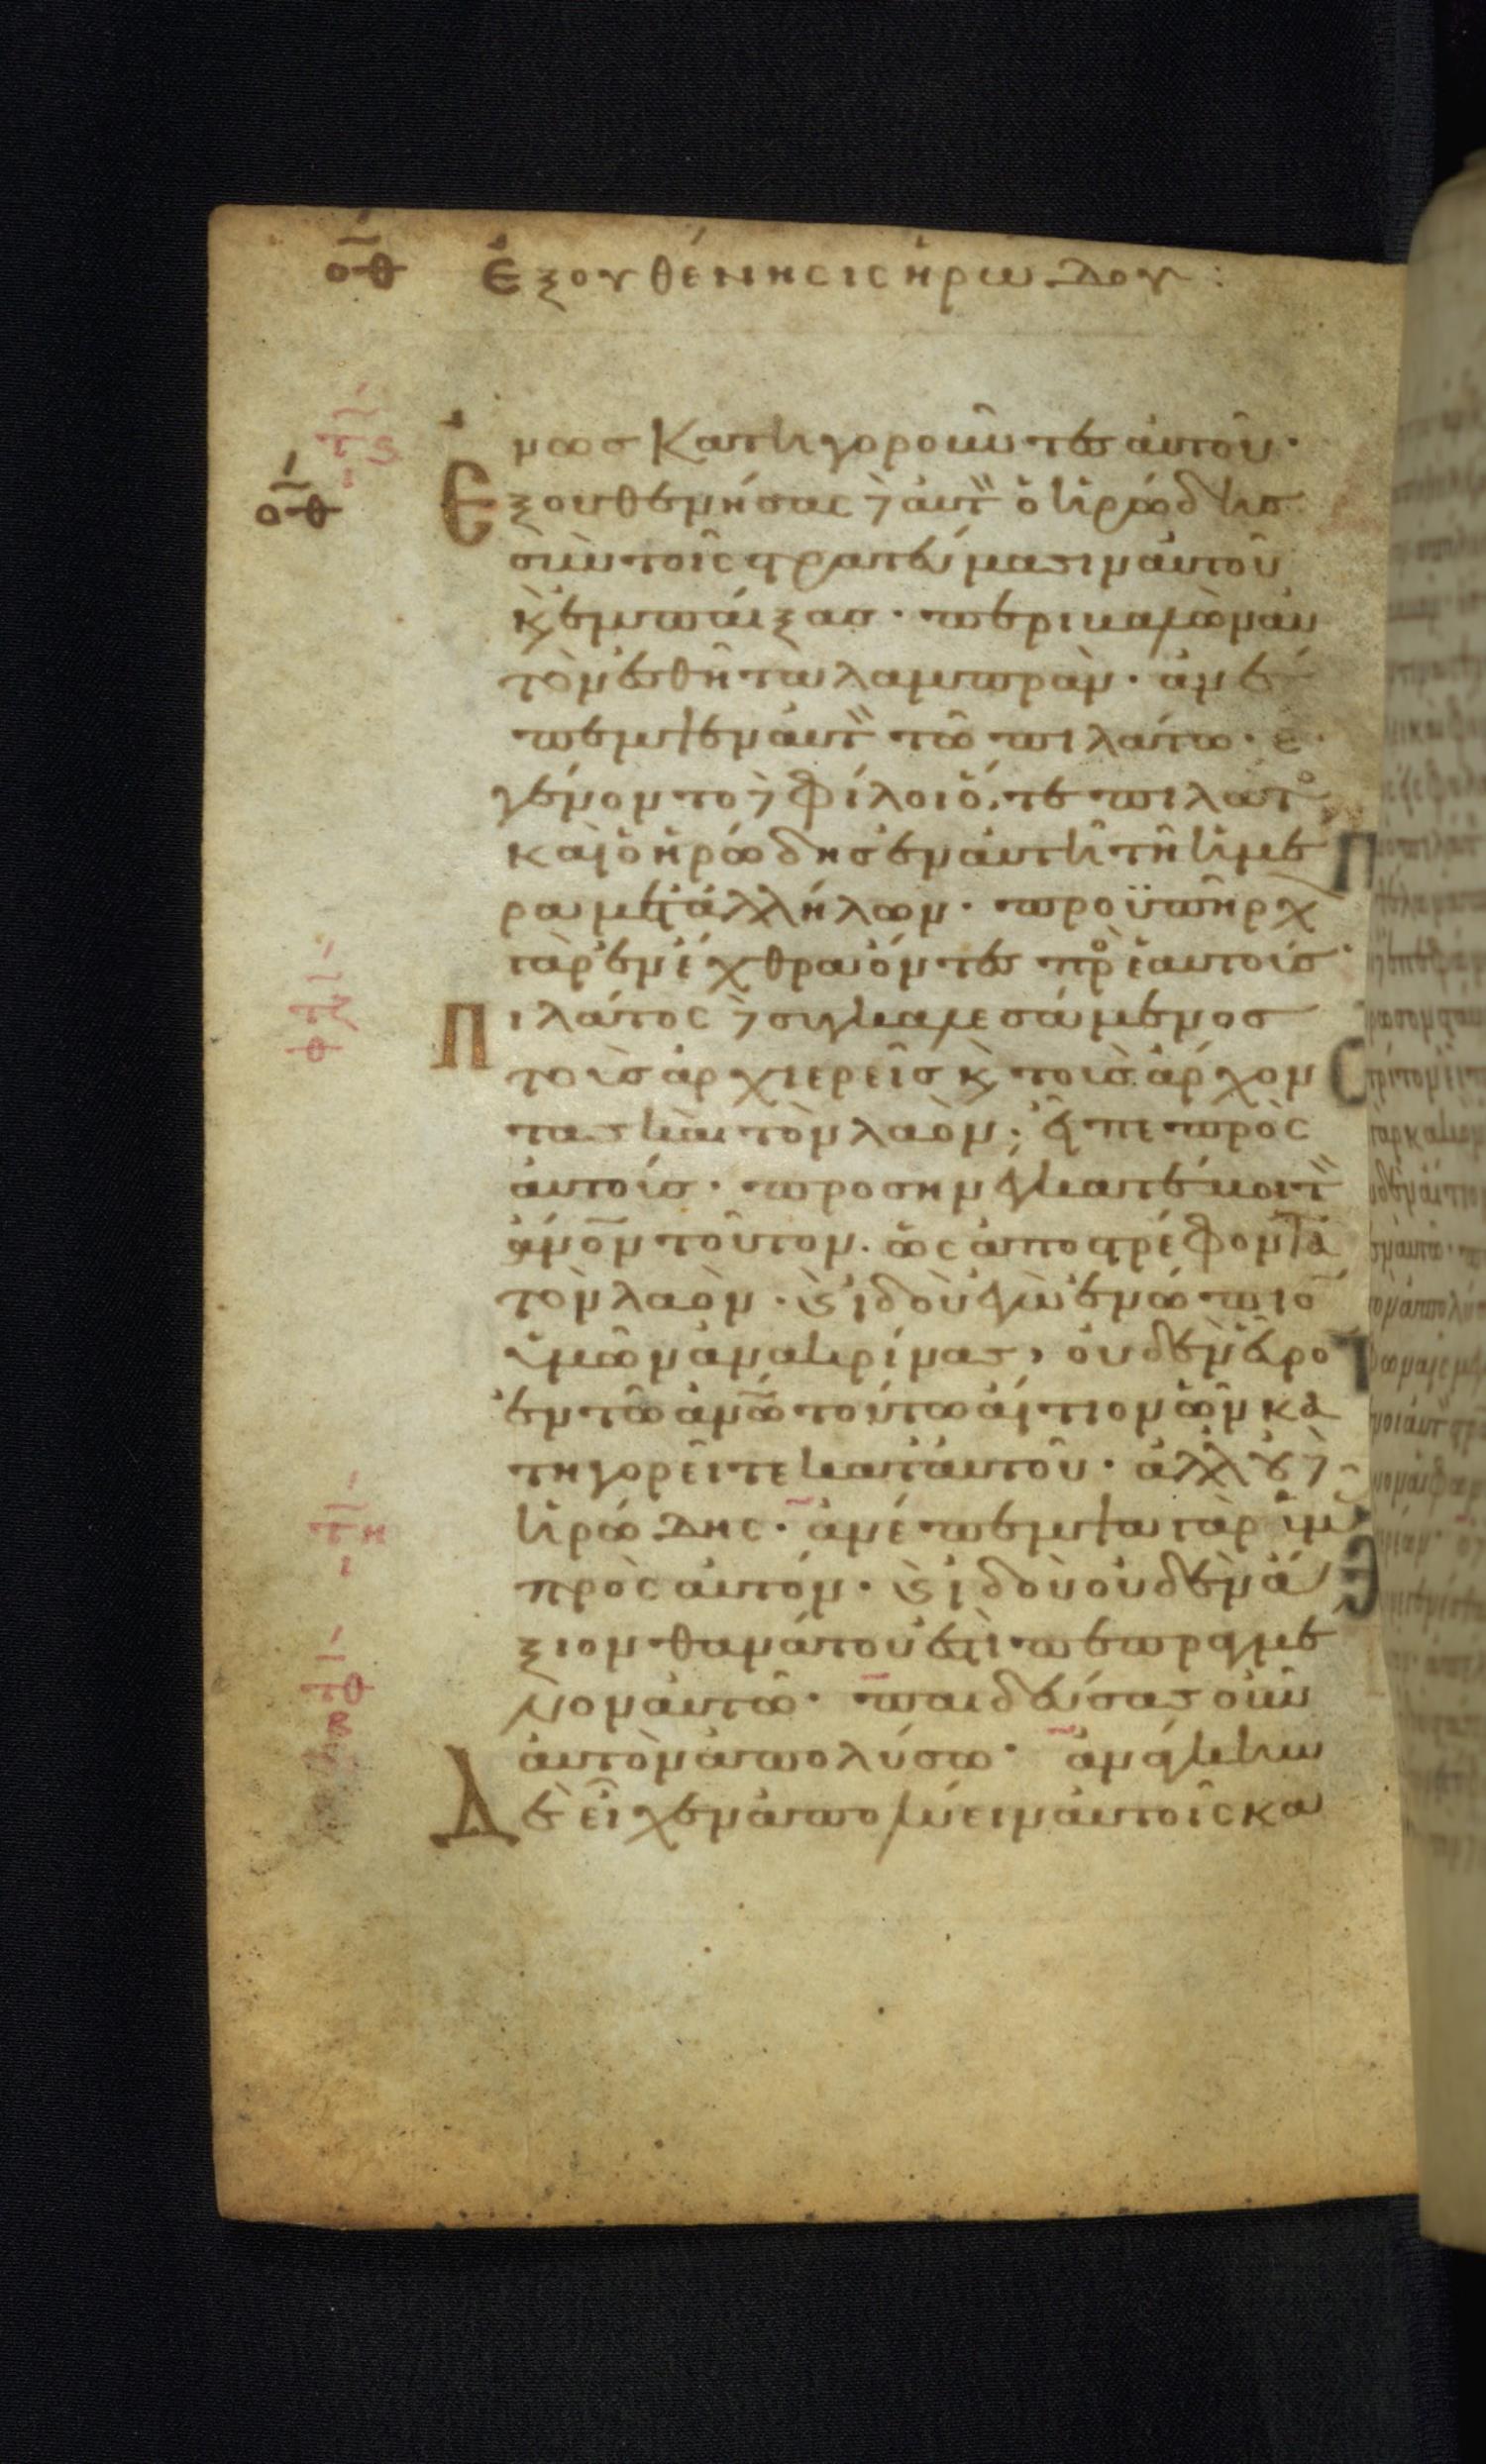 οθ Ἐξουθένησις ἡρώδου :
νως κατηγοροῦντες αὐτοῦ·
οθ Ἐξουθενήσας δὲ αὐτ ὁ ἡρώδης
σὺν τοῖς στρατεύμασιν αὐτοῦ
κ̀ ἐμπαίξας· περιβαλὼν αὐ
τὸν ἐσθῆτα λαμπρὰν· ἀνέ
πεμψεν αὐτ τῶ πιλάτω· ἐ
γένοντο δὲ φίλοι ὅ τε πιλᾶτο
καὶ ὁ ἡρώδης ἐν αὐτῆ τῆ ἡμέ
ρα μετ ἀλλήλων· προϋπῆρχ
γὰρ ἐν ἔχθρα ὄντες πρὸ ἑαυτούς·
Πιλάτος δὲ συγκαλεσάμενος
τοὺς ἀρχιερεῖς κ̀ τοὺς ἄρχον
τας καὶ τὸν λαὸν· εἶπε πρὸς
αὐτούς· προσηνέγκατέ μοι τ
ἄνον τοῦτον· ὡς ἀποστρέφοντα
τὸν λαὸν· κ̀ ἰδοὺ ἐγὼ ἐνώπιο
ὑμῶν ἀνακρίνας, οὐδὲν εὗρο
ἐν τῶ ἀνω τούτω αἴτιον ὧν κα
τηγορεῖτε κατ αὐτοῦ· ἀλλ οὐδ
ἡρώδης· ἀνέπεμψα γὰρ ὑμ
πρὸς αὐτόν· κ̀ ἰδοὺ οὐδὲν ἄ
ξιον θανάτου ἐστὶ πεπραγμέ
νον αὐτῶ· παιδεύσας οὖν
αὐτὸν ἀπολύσω· ἀνάγκην
Δὲ εἶχεν ἀπολύειν αὐτοῖς κα